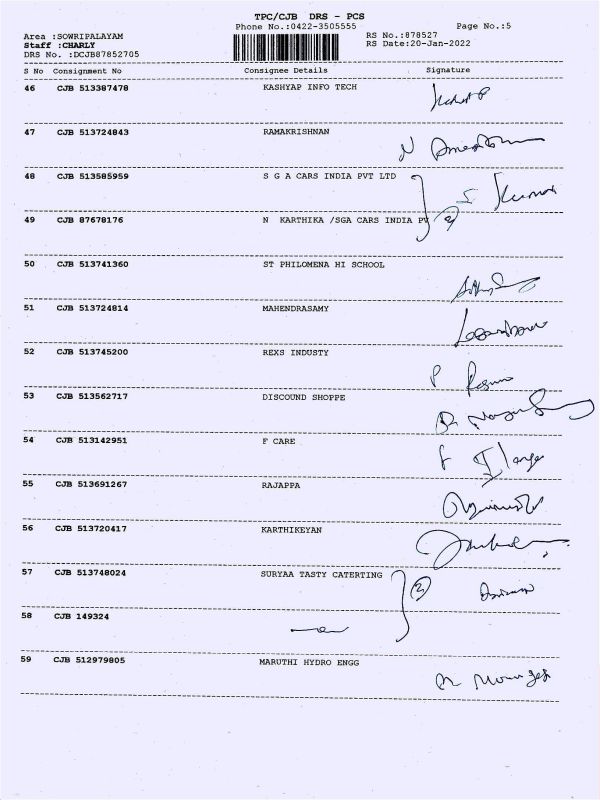 TPC/CJB DRS - PCS
Phone No.:0422-3505555 Page No.:5
Area :SOWRIPALAYAM RS No.:878527
Staff :CHARLY RS Date:20-Jan-2022
DRS No. :DCJB87852705
S No Consignment No Consignee Details Signature
46 CJB 513387478 KASHYAP INFO TECH
47 CJB 513724843 RAMAKRISHNAN
48 CJB 513585959 S G A CARS INDIA PVT LTD S Kumar
49 CJB 87678176 N KARTHIKA /SGA CARS INDIA PV 2
50 CJB 513741360 ST PHILOMENA HI SCHOOL
51 CJB 513724814 MAHENDRASAMY
52 CJB 513745200 REXS INDUSTY
53 CJB 513562717 DISCOUND SHOPPE
54 CJB 513142951 F CARE
55 CJB 513691267 RAJAPPA
56 CJB 513720417 KARTHIKEYAN
57 CJB 513748024 SURYAA TASTY CATERTING 2
58 CJB 149324
59 CJB 512979805 MARUTHI HYDRO ENGG